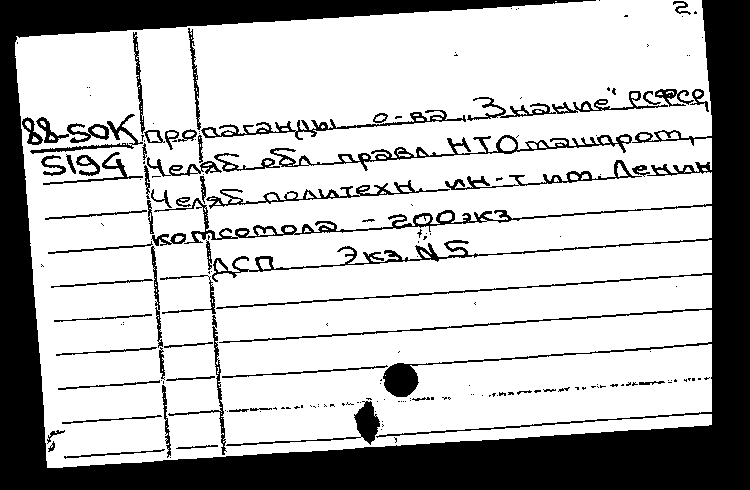 2.
88-50К пропаганды о-ва „Знание" РСФСР,
5194 Челяб. обл. правл. НТО машпром,
Челяб. политехн. ин-т им. Ленин
комсомола. - 200 экз.
ДСП. Экз. N 5.